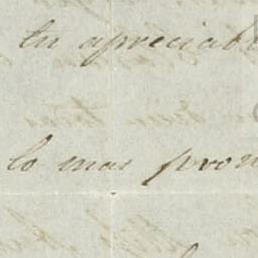 tu apreciabl
lo mas pron